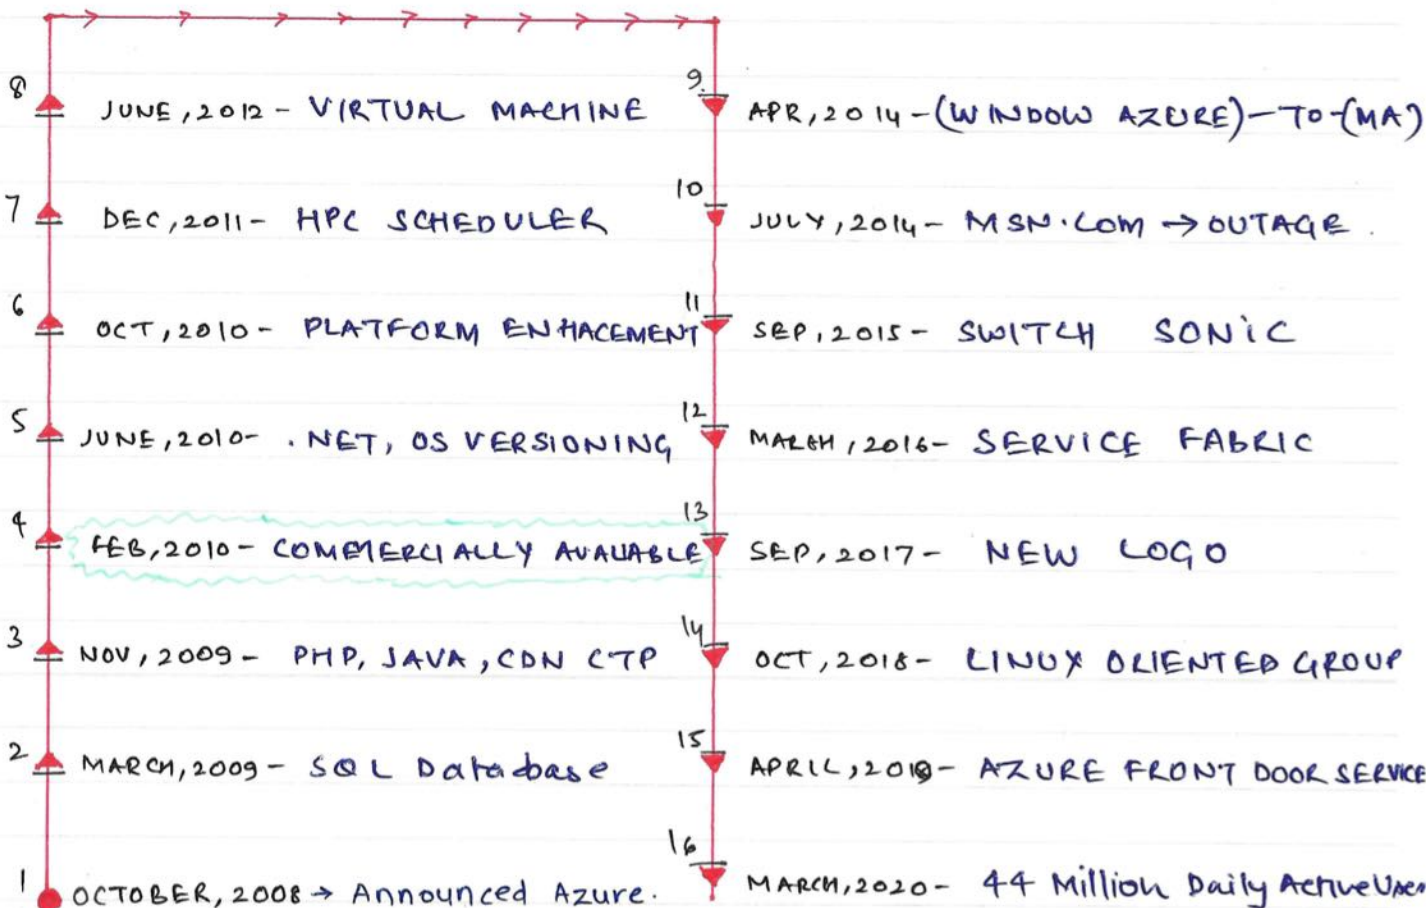 8 JUNE, 2012 - VIRTUAL MACHINE
7 DEC, 2011 - HPC SCHEDULER
6 OCT, 2010 - PLATFORM ENHACEMENT
5 JUNE, 2010 - .NET, OS VERSIONING
4 FEB, 2010 - COMMERCIALLY AVALIABLE
3 NOV, 2009 - PHP, JAVA, CDN CTP
2 MARCH, 2009 - SQL Database
1 OCTOBER, 2008 → Announced Azure.
9. APR, 2014 - (WINDOW AZURE) - TO - (MA)
10 JULY, 2014 - MSN.COM → OUTAGE.
11 SEP, 2015 - SWITCH SONiC
12 MARCH, 2016 - SERVICE FABRIC
13 SEP, 2017 - NEW LOGO
14 OCT, 2018 - LINUX ORIENTED GROUP
15 APRIL, 2019 - AZURE FRONT DOOR SERVICE
16 MARCH, 2020 - 44 Million Daily Active User